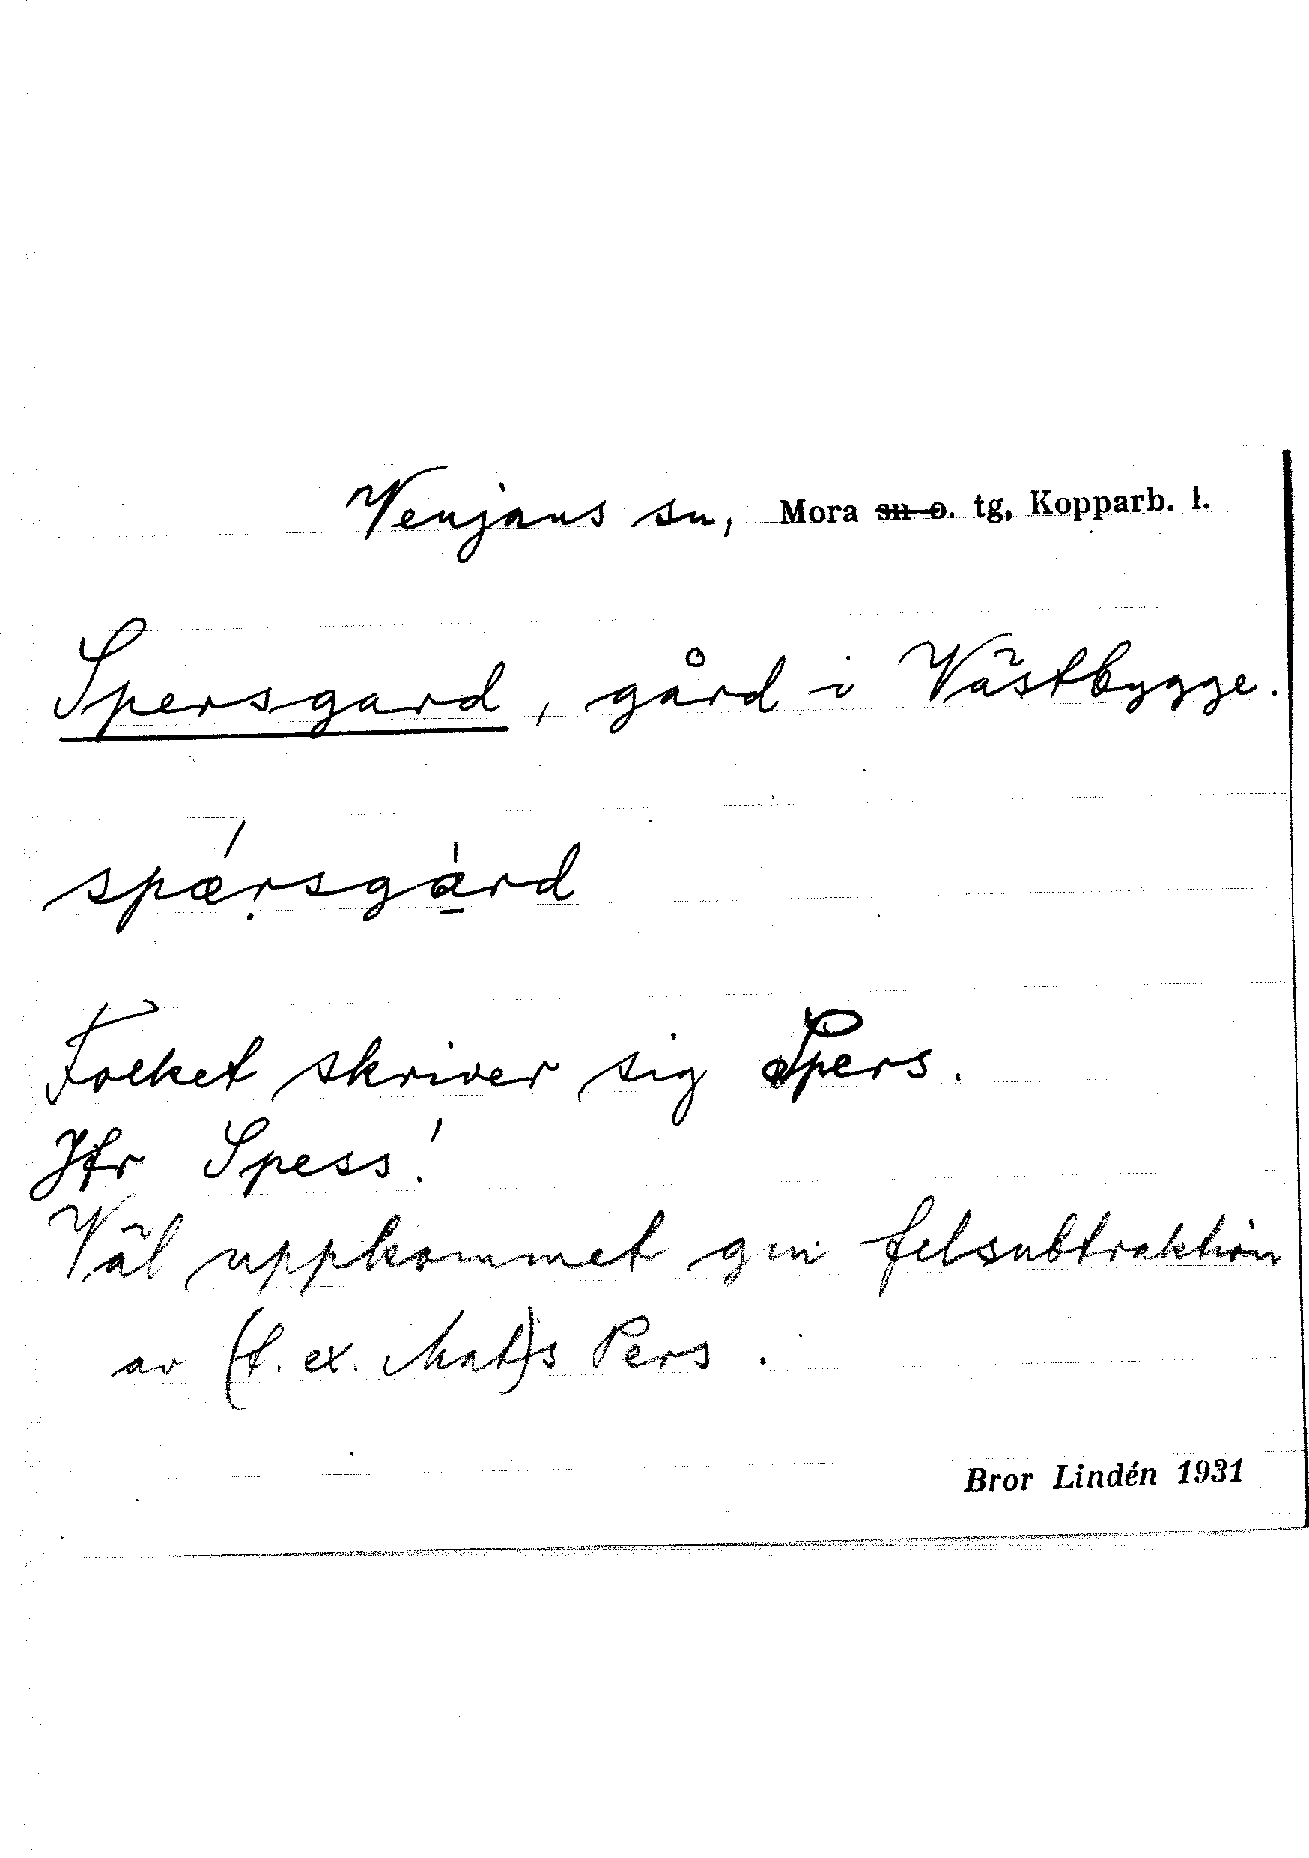 Venjans sn, Mora sn o. tg, Kopparb. l.
Spersgard, gård i Västbygge.
spæ´rsgà̠rd
Folket skriver sig Spers.
Jfr Spess!
Väl uppkommet gm felsubtraktion
av (t. ex. Mat)s Pers.
Bror Lindén 1931